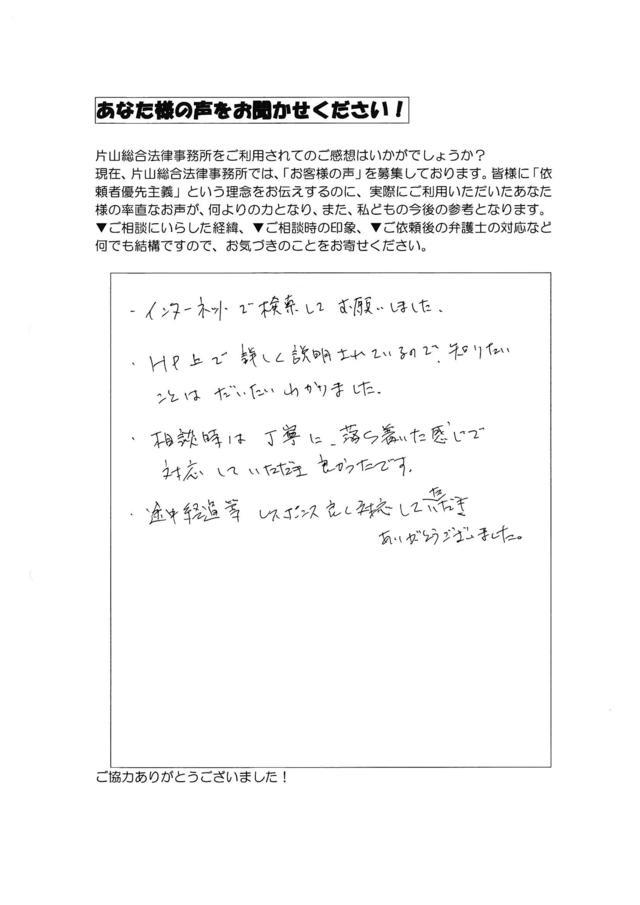 あなた様の声をお聞かせください！
片山総合法律事務所をご利用されてのご感想はいかがでしょうか？
現在、片山総合法律事務所では、「お客様の声」を募集しております。皆様に「依
頼者優先主義」という理念をお伝えするのに、実際にご利用いただいたあなた
様の率直なお声が、何よりの力となり、また、私どもの今後の参考となります。
▼ご相談にいらした経緯、▼ご相談時の印象、▼ご依頼後の弁護士の対応など
何でも結構ですので、お気づきのことをお寄せください。
・インターネットで検索してお願いしました。
・HP上で詳しく説明されているので、知りたい
ことはだいたいわかりました。
・相談時は丁寧に、落ち着いた感じで
対応していただき良かったです。
・途中経過等 レスポンス良く対応していただき
ありがとうございました。
ご協力ありがとうございました！